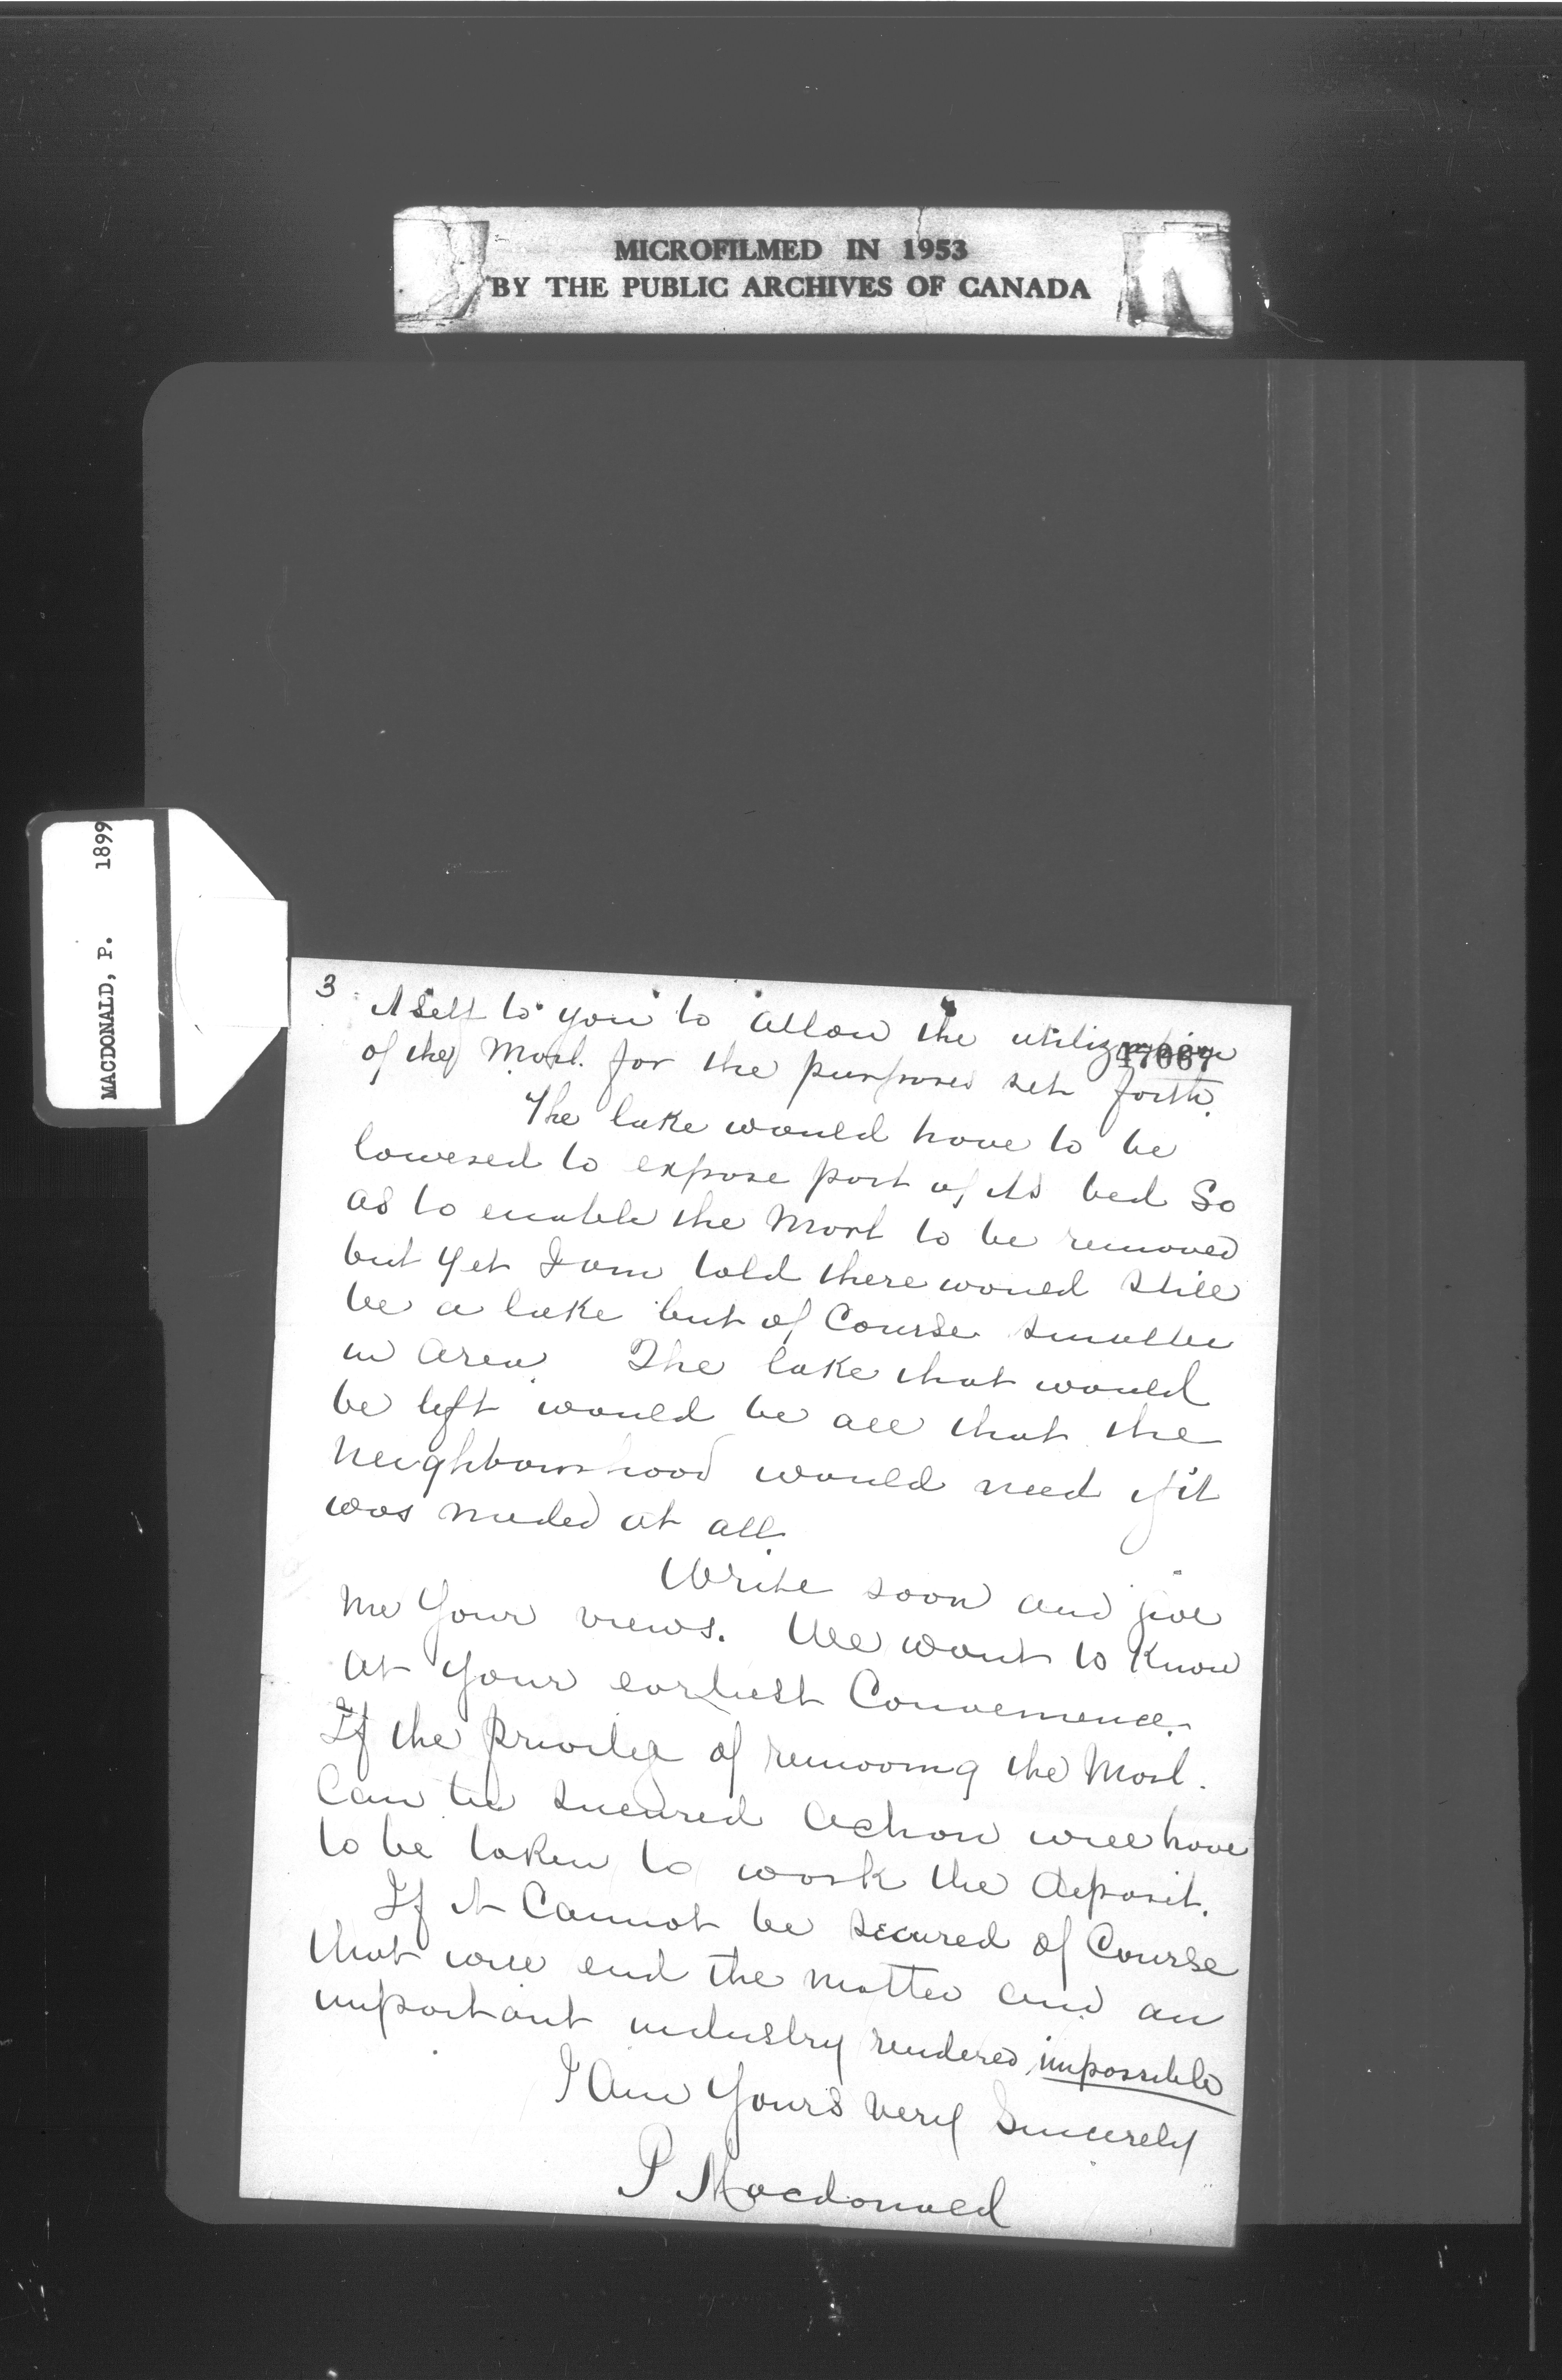 MICROFILMED IN 1953
BY THE PUBLIC ARCHIVES OF CANADA
MACDONALD, P. 1899
3
itself to you to allow the utilization
17667
of the Marl. for the purposes set forth.
The lake would have to be
lowered to expose part of its bed So
as to enable the Marl to be removed
but yet I am told there would still
be a lake but of Course smaller
in area. The lake that would
be left would be all that the
neighbourhood would need if it
was needed at all.
Write soon and give
me your views. We want to Know
at your earliest Convenience.
If the privilege of removing the Marl.
Can be secured action will have
to be taken to work the deposit.
If it Cannot be secured of Course
that will end the matter and an
important industry rendered impossible
I am yours very Sincerely
P Macdonald